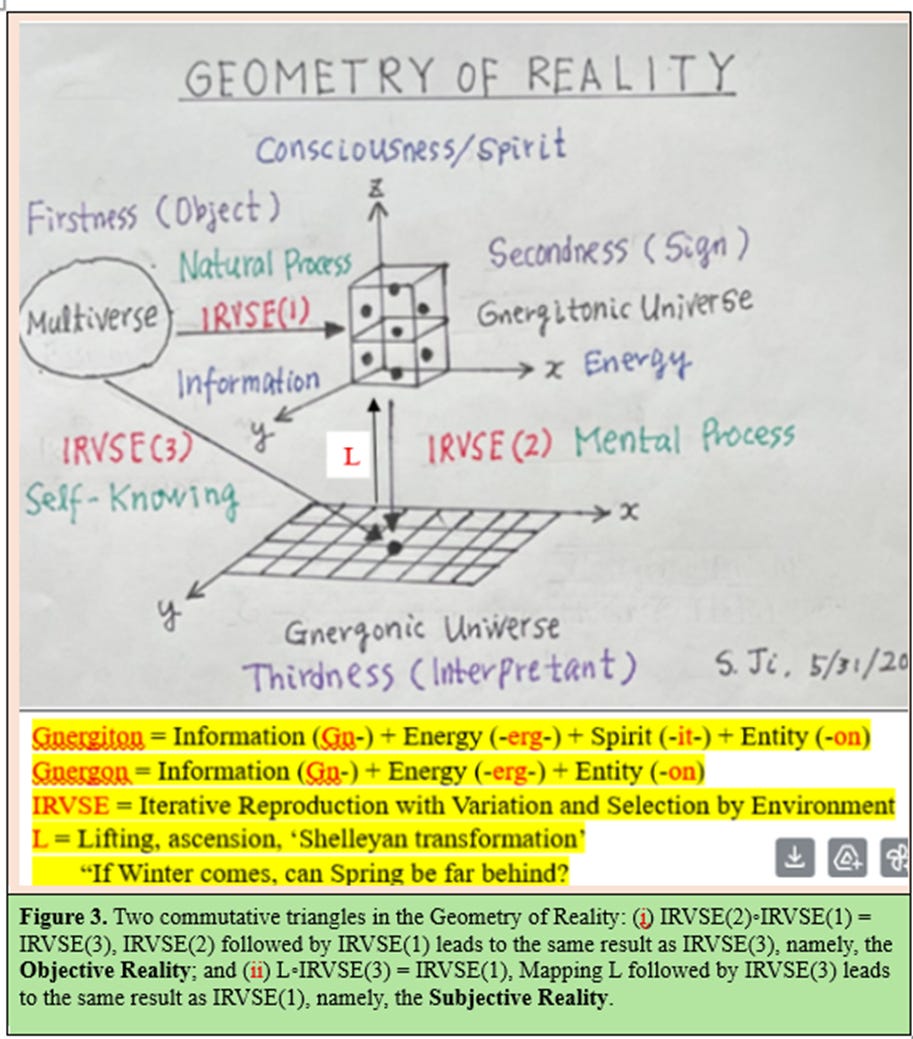 GEOMETRY OF REALITY
Consciousness/Spirit
z
Firstness (Object)
Natural Process
Secondness (Sign)
Multiverse
IRVSE(1)
Gnergitonic Universe
Information
x Energy
y
IRVSE(3)
L
IRVSE(2) Mental Process
Self-Knowing
x
y
Gnergonic Universe
Thirdness (Interpretant)
S. Ji, 5/31/20
Gnergiton = Information (Gn-) + Energy (-erg-) + Spirit (-it-) + Entity (-on)
Gnergon = Information (Gn-) + Energy (-erg-) + Entity (-on)
IRVSE = Iterative Reproduction with Variation and Selection by Environment
L = Lifting, ascension, ‘Shelleyan transformation’
“If Winter comes, can Spring be far behind?
Figure 3. Two commutative triangles in the Geometry of Reality: (i) IRVSE(2)◦IRVSE(1) =
IRVSE(3), IRVSE(2) followed by IRVSE(1) leads to the same result as IRVSE(3), namely, the
Objective Reality; and (ii) L◦IRVSE(3) = IRVSE(1), Mapping L followed by IRVSE(3) leads
to the same result as IRVSE(1), namely, the Subjective Reality.